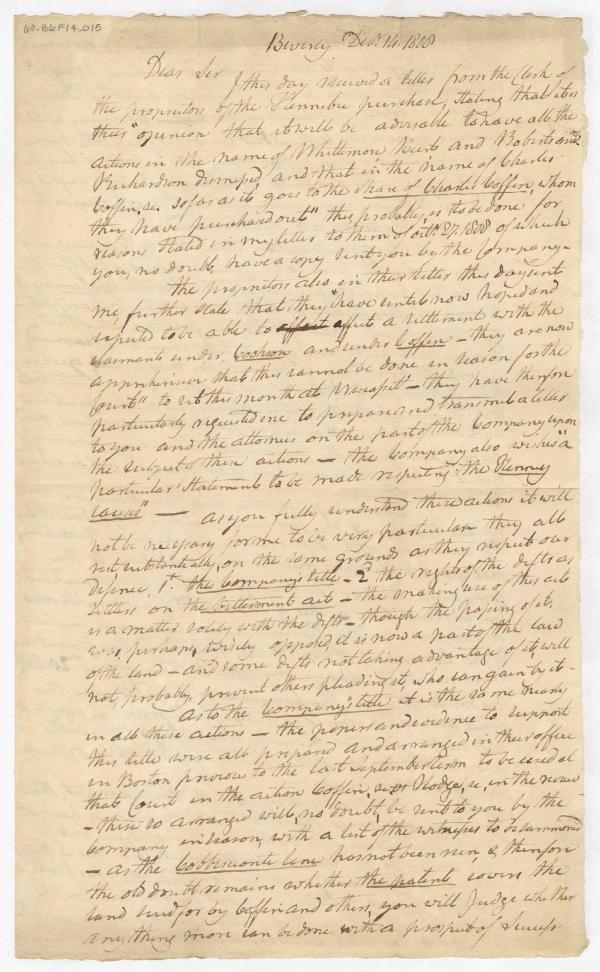 60-B6F14_015
Beverly Decr. 14. 1808
Dear Sir I this day received a letter from the Clerk of
the proprietors of the Kennebec purchase, stating that it is
their "opinion that it will be advisable to have all the
actions in the name of Whittemore and Roberts and
Richardson dismissed, and that in the name of Charles
Coffin, so far as it goes to the share of Charles Coffin, whom
they have purchased out" this probably, is to be done for
reasons stated in my letter to them of Octr. 27. 1808 of which
you, no doubt, have a copy sent you by the Company—
The proprietors also in their letter this day sent
me, further state that they "have until now hoped and
expected to be able to effect a settlement with the
claimants under, and under Coffin — they are now
apprehensive that this cannot be done in season for the
Court" to sit this month at — they have therefore
particularly requested me to prepare and transmit a letter
to you and the attornies on the part of the Company upon
the subject of these actions — the Company also wishes "a
particular statement to be made respecting the
causes" — as you fully understand these actions it will
not be necessary for me to be very particular they all
rest substantially, on the same grounds as they respect our
defence, 1st. the Company's title — 2d the rights of the defts as
settlers on the betterment act — the making use of this act
is a matter solely with the defts — though the passing of it,
was, perhaps, wisely opposed, it is now a part of the law
of the land — and some defts not taking advantage of it will
not, probably, prevent others pleading it, who can gain by it—
As to the Company's title it is the same nearly
in all these actions — the papers and evidence to support
this title were all prepared and arranged in their office
in Boston previous to the last September term to be used at
that Court in the action Coffin, in the review
— these so arranged will, no doubt, be sent to you by the
Company in season, with a list of the witnesses to be summoned
— as the Cobbisconte line has not been run, & therefore
the old doubt remains whether the patent covers the
land sued for by Coffin and others, you will Judge whether
any thing more can be done with a prospect of success